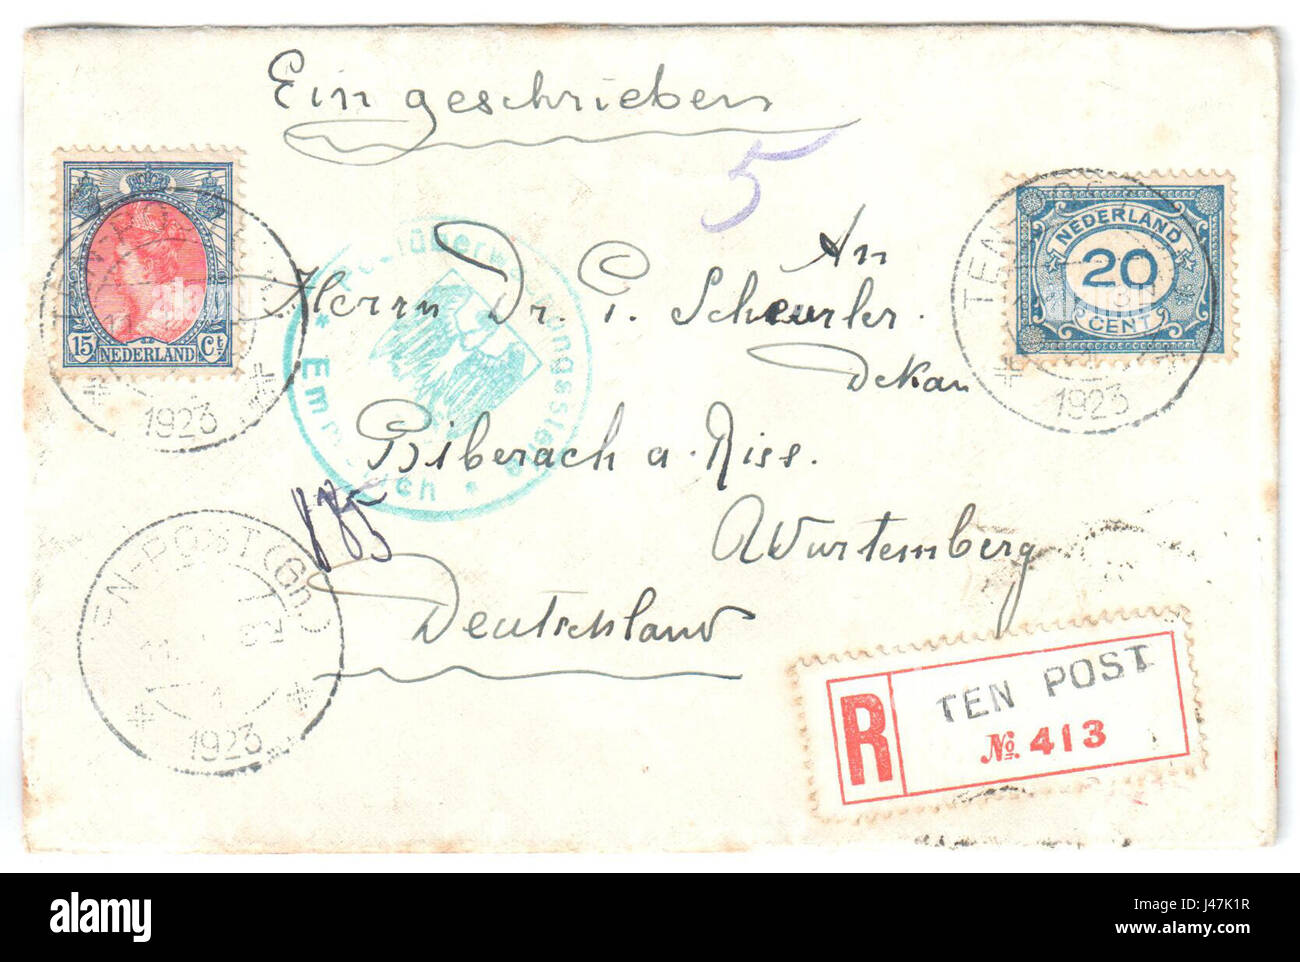 Ein geschrieben
5
An
Herrn Dr. P. Scheurler.
Dekan
Biberach a. Riss.
Wurtemberg
Deutschland
15 NEDERLAND Ct.
NEDERLAND
20
CENT
1923
1923
TEN-POST (Gn)
1923
R
TEN POST
No. 413
alamy
Image ID: J47K1R
www.alamy.com